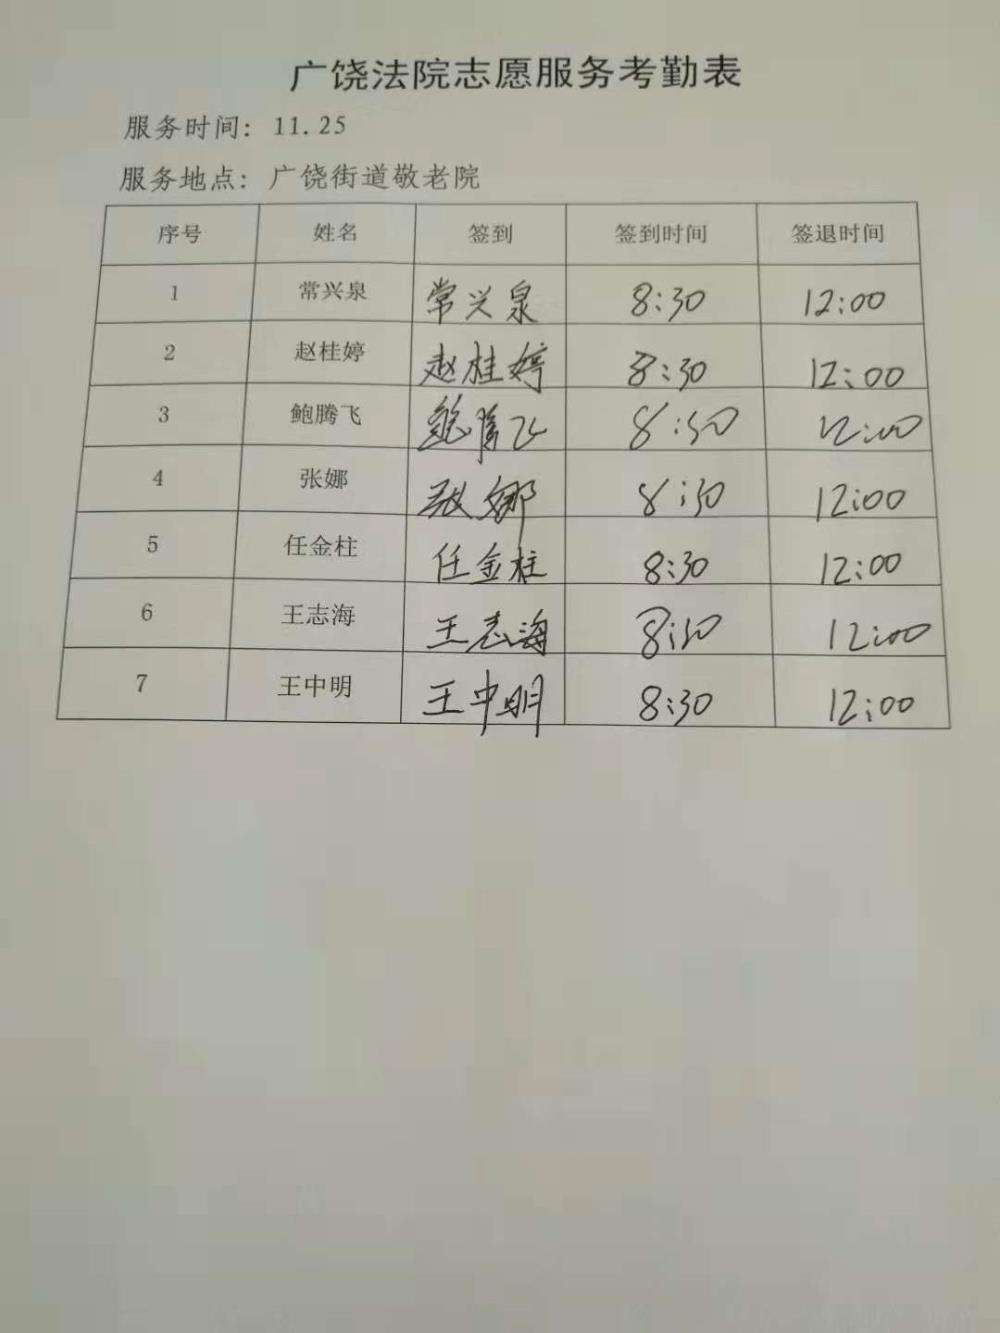 广饶法院志愿服务考勤表
服务时间: 11.25
服务地点: 广饶街道敬老院
序号 姓名 签到 签到时间 签退时间
1 常兴泉 常兴泉 8:30 12:00
2 赵桂婷 赵桂婷 8:30 12:00
3 鲍腾飞 鲍腾飞 8:30 12:00
4 张娜 张娜 8:30 12:00
5 任金柱 任金柱 8:30 12:00
6 王志海 王志海 8:30 12:00
7 王中明 王中明 8:30 12:00